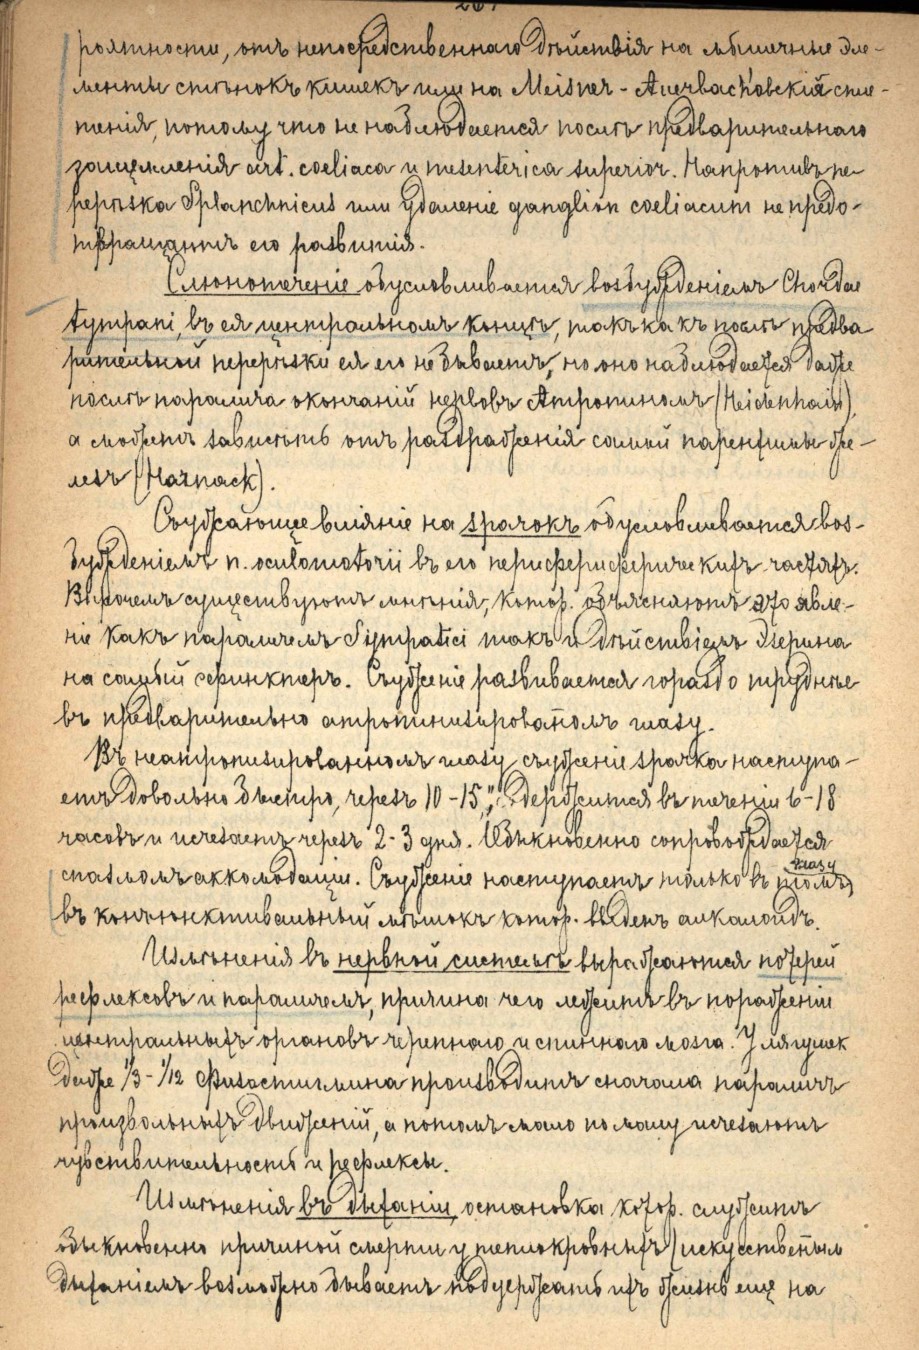 роятности, отъ непосредственнаго дѣйствія на мышечные эле-
менты стѣнокъ кишекъ или на Meisner-Auerbach'овскія спле-
тенія, потому что не наблюдается послѣ предварительнаго
защемленія art. coeliaca и mesenterica superior. Напротивъ пе-
рерѣзка Splanchnicus или удаленіе ganglion coeliacum не предо-
твращаютъ его развитія.
Слюнотеченіе обусловливается возбужденіемъ Chordae
tympani, въ ея центральномъ концѣ, такъ какъ послѣ предва
рительной перерѣзки ея его не бываетъ, но оно наблюдается даже
послѣ паралича окончаній нервовъ Атропиномъ (Heidenhain),
а можетъ зависѣть отъ раздраженія самой паренхимы же-
лезъ (Harnack).
Съуживающее вліяніе на зрачокъ обусловливается воз-
бужденіемъ n. oculomotorii въ его периферическихъ частяхъ.
Впрочемъ существуютъ мнѣнія, котор. объясняютъ это явле-
ніе какъ параличемъ Sympatici такъ и дѣйствіемъ Эзерина
на самый сфинктеръ. Съуженіе развивается гораздо труднѣе
въ предварительно атропинизированомъ глазу.
Въ неатропизированномъ глазу съуженіе зрачка наступа-
етъ довольно быстро, черезъ 10-15," держится въ теченіи 6-18
часовъ и исчезаетъ черезъ 2-3 дня. Обыкновенно сопровождается
спазмомъ аккомодаціи. Съуженіе наступаетъ только въ томъ глазу,
въ конъюнктивальный мѣшокъ котор. введенъ алкалоидъ.
Измѣненія въ нервной системѣ выражаются потерей
рефлексовъ и параличемъ, причина чего лежитъ въ пораженіи
центральныхъ органовъ черепнаго и спиннаго мозга. У лягушек
даже 1/3-1/12 Физостигмина производитъ сначала параличъ
произвольныхъ движеній, а потомъ мало по малу исчезаютъ
чувствительность и рефлексы.
Измѣненія въ дыханіи, остановка котор. служитъ
обыкновенно причиной смерти у теплокровныхъ (искусственымъ
дыханіемъ возможно бываетъ поддержать ихъ жизнь еще на